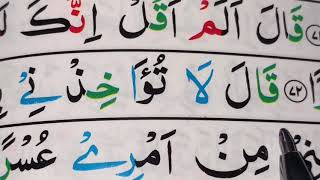 قَالَ اَلَمْ اَقُلْ اِنَّكَ
قَالَ لَا تُؤَاخِذْنِيْ ٧٢
مِنْ اَمْرِيْ عُسْرًا